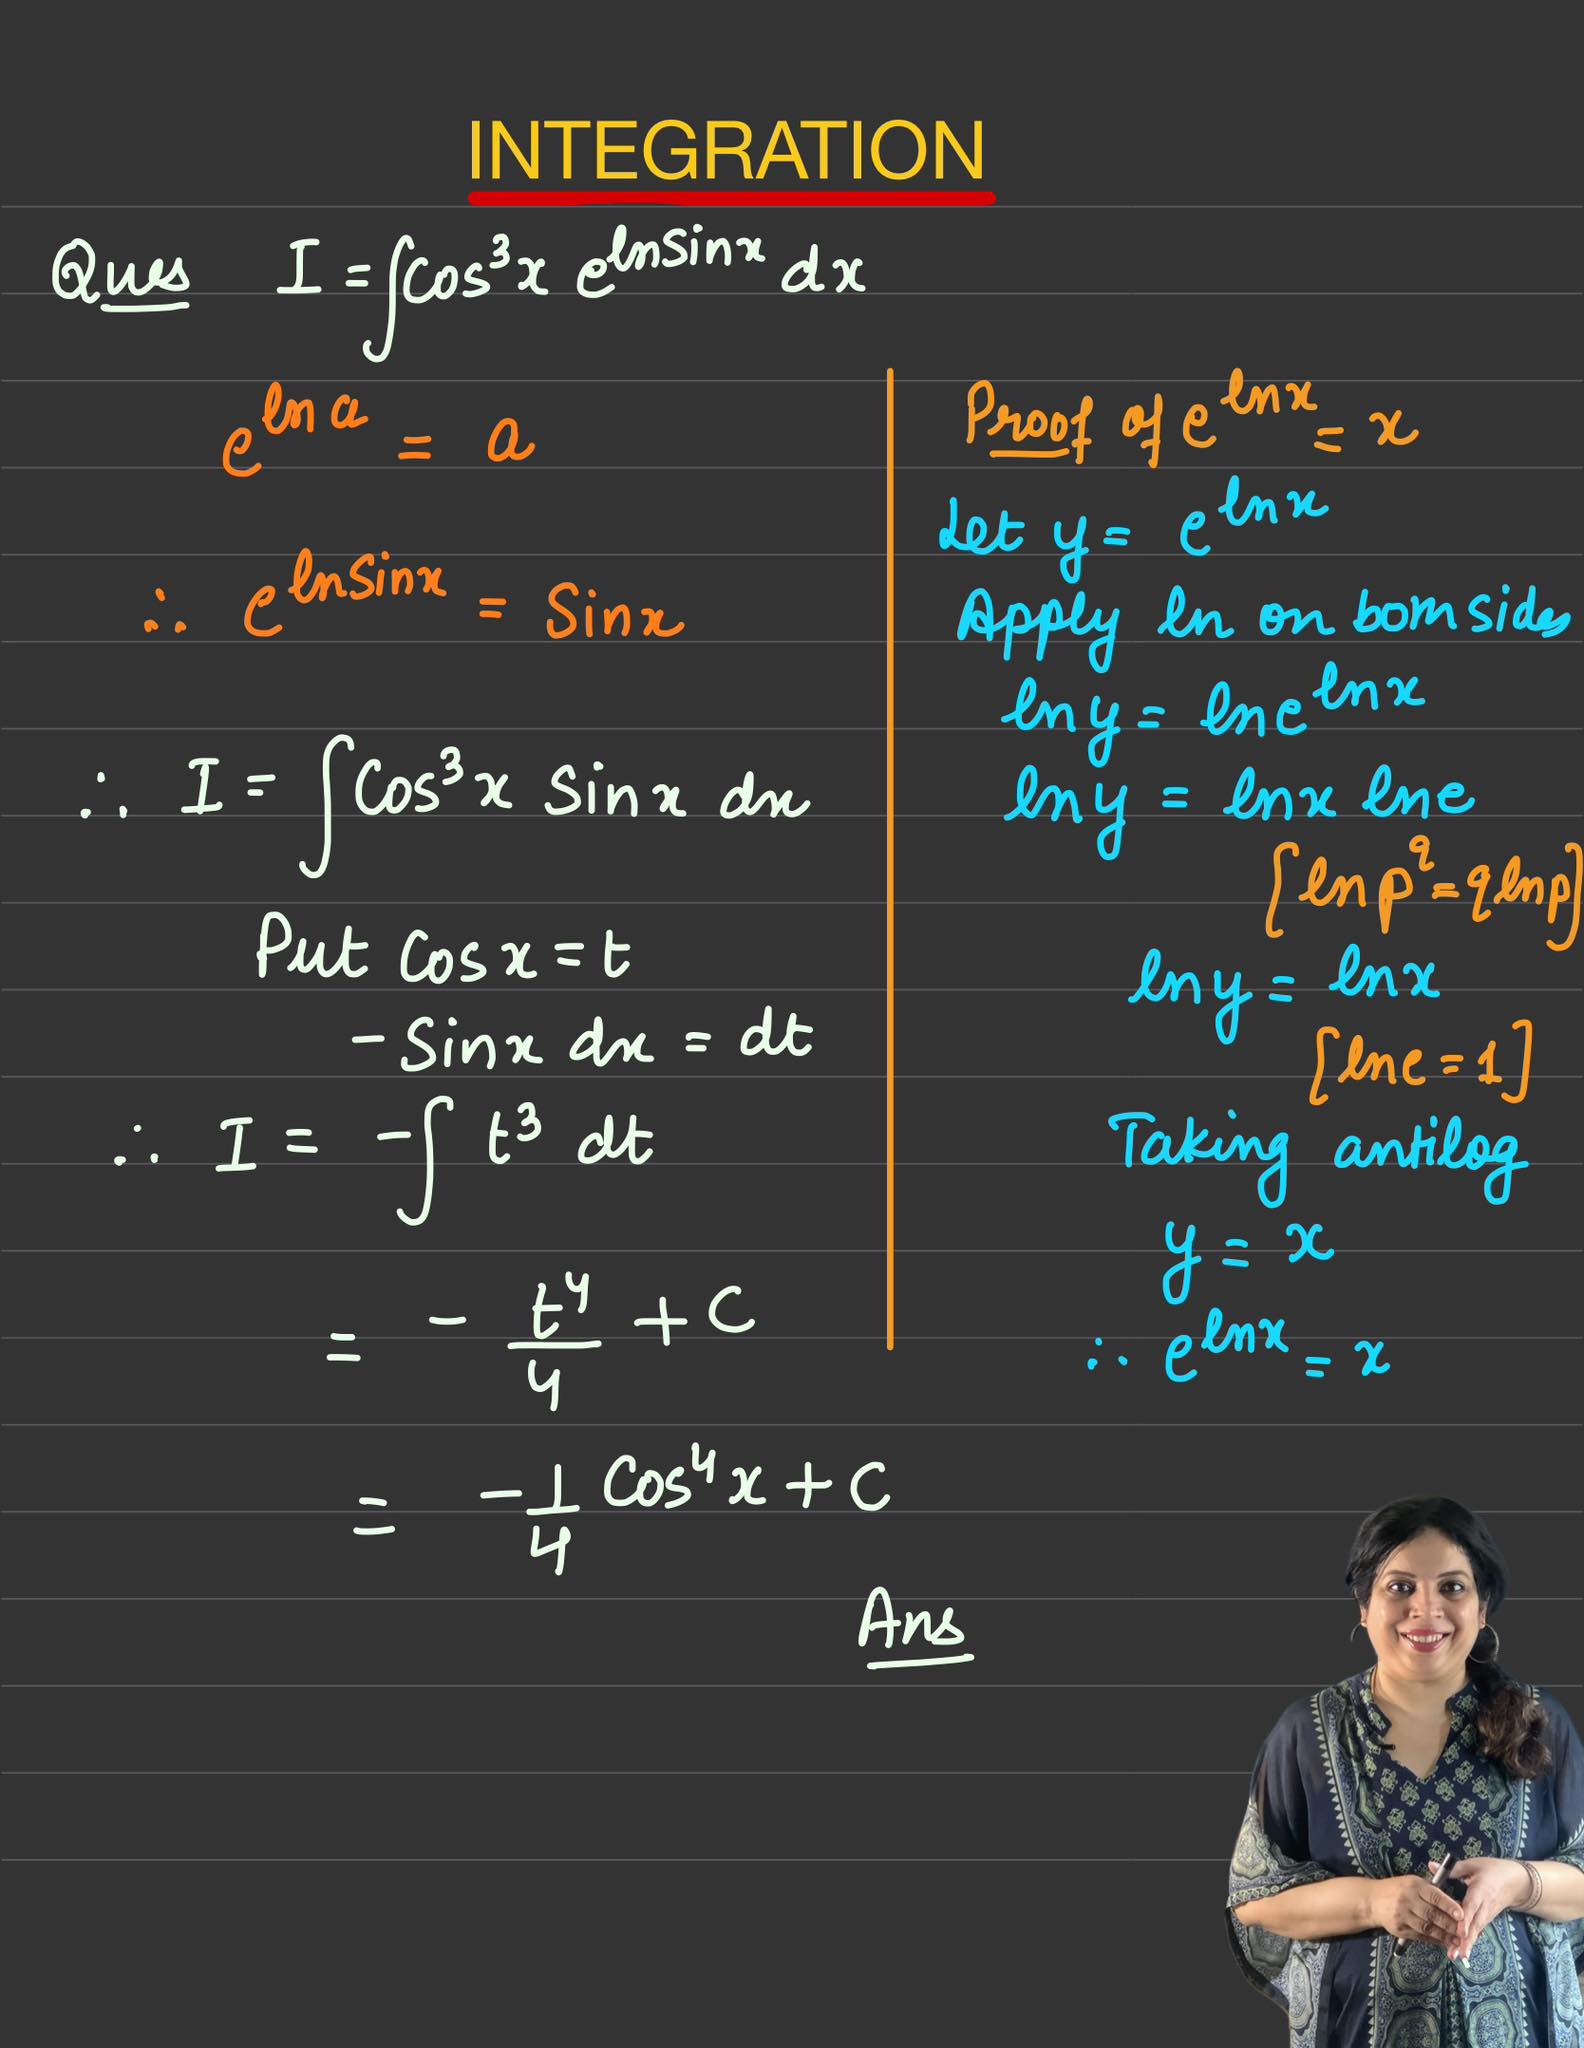 INTEGRATION
Ques I = ∫Cos³x e^{lnSinx} dx
e^{ln a} = a
∴ e^{lnSinx} = Sinx
∴ I = ∫Cos³x Sinx dx
Put Cosx = t
-Sinx dx = dt
∴ I = -∫ t³ dt
= - t⁴/4 + C
= -1/4 Cos⁴x + C
Ans
Proof of e^{lnx} = x
Let y = e^{lnx}
Apply ln on both sides
ln y = ln e^{lnx}
ln y = lnx lne
[ln p^q = q ln p]
ln y = lnx
[lne = 1]
Taking antilog
y = x
∴ e^{lnx} = x